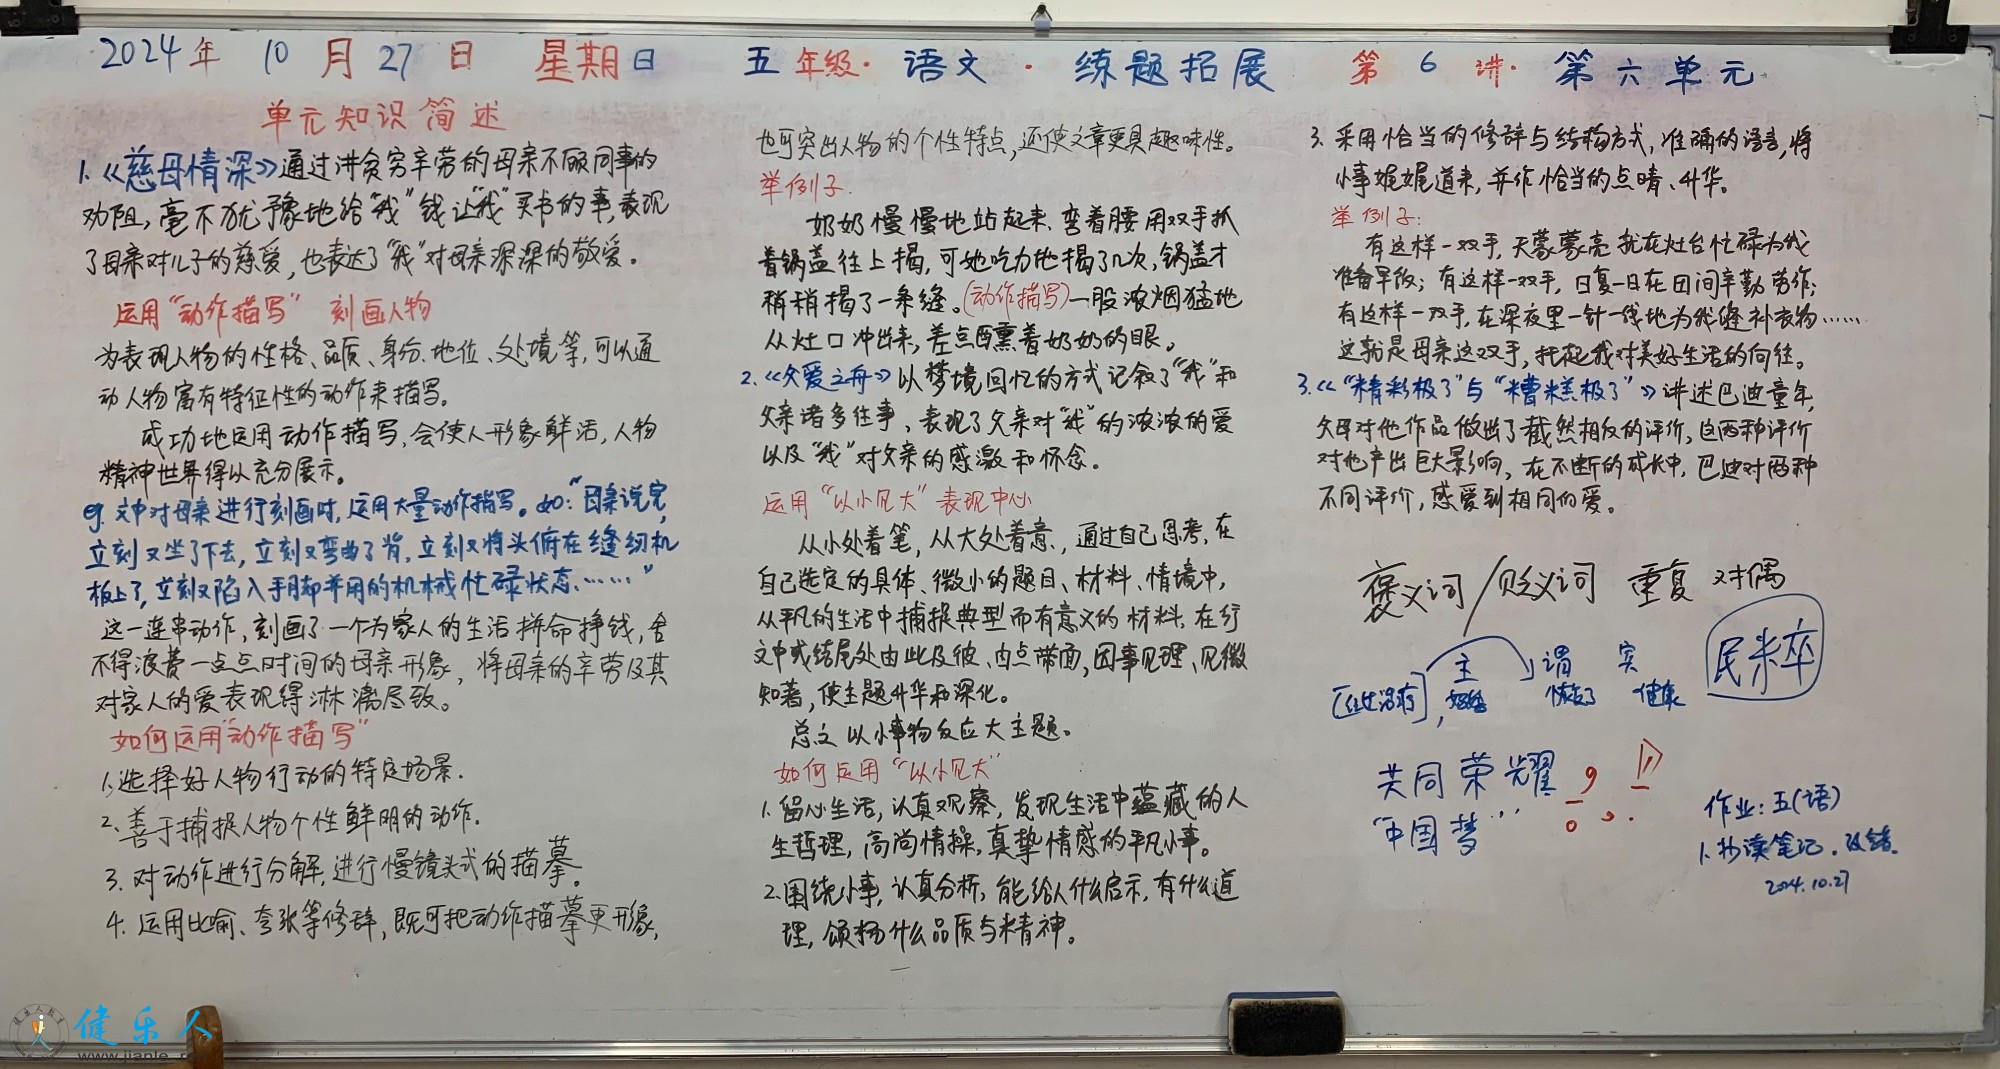 2024年 10月27日 星期日 五年级·语文·练题拓展 第6讲·第六单元
单元知识简述
1.《慈母情深》通过讲贫穷辛劳的母亲不顾同事的
劝阻，毫不犹豫地给“我”钱让“我”买书的事，表现
了母亲对儿子的慈爱，也表达了“我”对母亲深深的敬爱。
运用“动作描写” 刻画人物
为表现人物的性格、品质、身份、地位、处境等，可以通
动人物富有特征性的动作来描写。
成功地运用动作描写，会使人形象鲜活，人物
精神世界得以充分展示。
eg.文中对母亲进行刻画时，运用大量动作描写。如：“母亲说完，
立刻又坐了下去，立刻又弯曲了背，立刻又将头俯在缝纫机
板上了，立刻又陷入手脚并用的机械忙碌状态……”
这一连串动作，刻画了一个为家人的生活拼命挣钱，舍
不得浪费一点点时间的母亲形象，将母亲的辛劳及其
对家人的爱表现得淋漓尽致。
如何运用“动作描写”
1、选择好人物行动的特定场景.
2、善于捕捉人物个性鲜明的动作.
3. 对动作进行分解，进行慢镜头式的描摹。
4. 运用比喻、夸张等修辞，既可把动作描摹更形象，
也可突出人物的个性特点，还使文章更具趣味性。
举例子.
奶奶慢慢地站起来、弯着腰用双手抓
着锅盖往上揭，可她吃力地揭了几次，锅盖才
稍稍揭了一条缝。(动作描写)一股浓烟猛地
从灶口冲出来，差点熏着奶奶的眼。
2.《父爱之舟》以梦境回忆的方式记叙了“我”和
父亲诸多往事、表现了父亲对“我”的浓浓的爱
以及“我”对父亲的感激和怀念。
运用“以小见大”表现中心
从小处着笔，从大处着意，通过自己思考，在
自己选定的具体、微小的题目、材料、情境中，
从平凡的生活中捕捉典型而有意义的材料，在行
文中或结尾处由此及彼、由点带面，因事见理、见微
知著，使主题升华和深化。
总之以小事物反应大主题。
如何应用“以小见大”
1.留心生活，认真观察，发现生活中蕴藏的人
生哲理，高尚情操，真挚情感的平凡小事。
2.围绕小事，认真分析，能给人什么启示，有什么道
理，颂扬什么品质与精神。
3. 采用恰当的修辞与结构方式，准确的语言，将
小事娓娓道来，并作恰当的点睛、升华。
举例子：
有这样一双手，天蒙蒙亮就在灶台忙碌为我
准备早饭；有这样一双手，日复一日在田间辛勤劳作；
有这样一双手，在深夜里一针一线地为我缝补衣物……
这就是母亲这双手，托起我对美好生活的向往。
3.《“精彩极了”与“糟糕极了”》讲述巴迪童年，
父母对他作品做出了截然相反的评价，这两种评价
对他产出巨大影响，在不断的成长中，巴迪对两种
不同评价，感爱到相同的爱。
褒义词/贬义词 重复 对偶
主 谓 宾
恢复了 健康
民米卒
共同荣耀
“中国梦”
作业：五(语)
1、抄读笔记。改错。
2024.10.27
健乐人
www.jianle